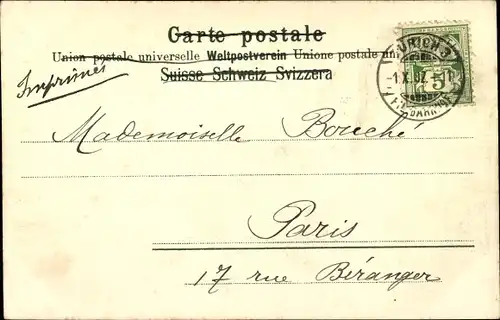 Carte postale
Union postale universelle Weltpostverein Unione postale uni
Suisse Schweiz Svizzera
Imprimés
ZÜRICH 3
5
Mademoiselle Bouché
Paris
17 rue Béranger